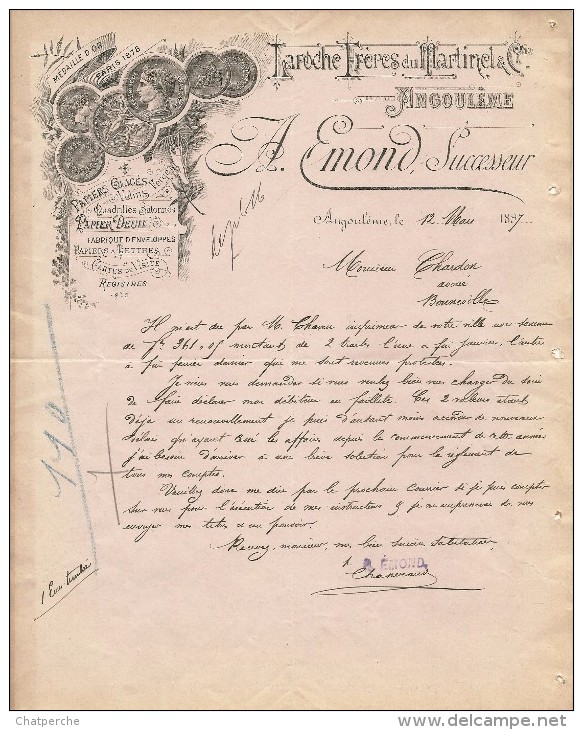 MÉDAILLE D'OR
PARIS 1878
Laroche Frères du Martinet & Cie
ANGOULÊME
A. Emond, Successeur
PAPIERS GLACÉS
Quadrillés
PAPIER DEUIL
FABRIQUE D'ENVELOPPES
PAPIERS À LETTRES
CARTES DE VISITE
REGISTRES
Angoulême, le 12 Mars 1887
Monsieur Chardon
avoué
Bonneville
Il m'est dû par M. imprimeur de votre ville une somme
de f. 361,05 montant de 2 traites l'une a fin janvier, l'autre
à fin février dernier qui me sont revenues protestées.
Je viens vous demander si vous voulez bien vous charger du soin
de faire déclarer mon débiteur en faillite. Ces 2 valeurs étant
déjà en renouvellement je puis d'autant moins accorder de nouveaux
délais qu'ayant les affaires depuis le commencement de cette année
j'ai besoin d'arriver à une brève solution pour le règlement de
tous mes comptes.
Veuillez donc me dire par le prochain courrier si je puis compter
sur vous pour l'exécution de mes instructions & je m'empresserai de vous
envoyer mes titres & un pouvoir.
Recevez, monsieur, mes bien sincères salutations
A. ÉMOND
140
Chatperche
www.delcampe.net